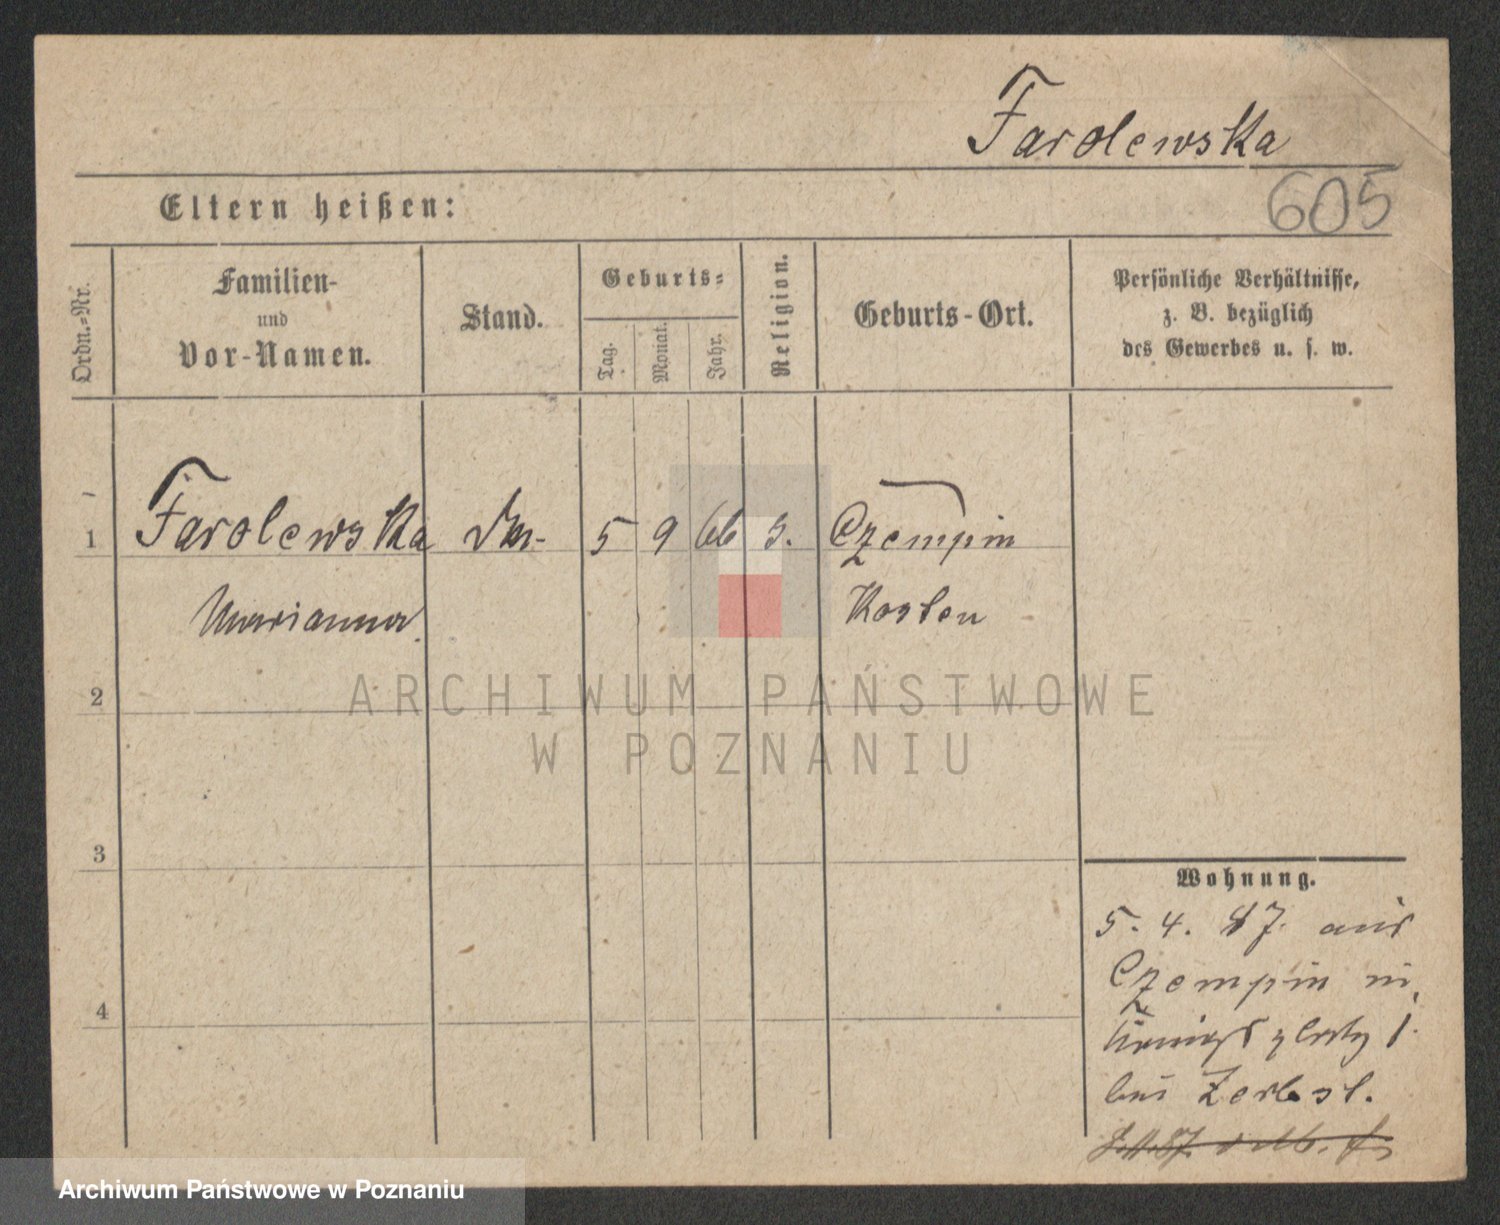 Farolewska
605
Eltern heißen:
Ordn.-Nr.
Familien-
und
Vor-Namen.
Stand.
Geburts-
Tag.
Monat.
Jahr.
Religion.
Geburts-Ort.
Persönliche Verhältnisse,
z. B. bezüglich
des Gewerbes u. s. w.
1 Farolewska 5 9 66 Czempin
Marianna Kosten
2
3
4
Wohnung.
5. 4. 87. aus
Czempin in
Königsplatz 1.
bei Zerbst.
ARCHIWUM PAŃSTWOWE
W POZNANIU
Archiwum Państwowe w Poznaniu